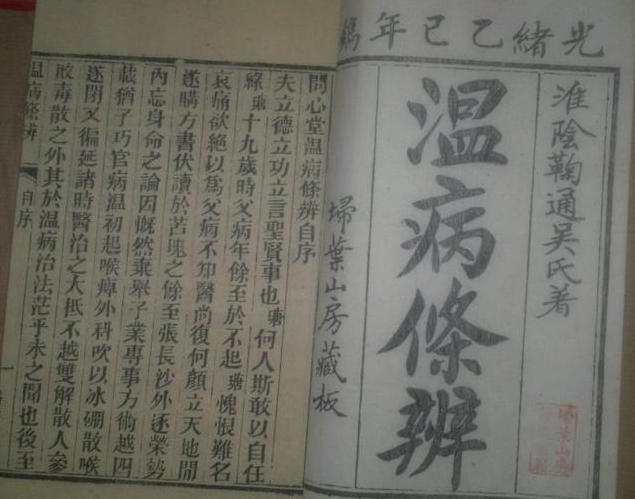 光緒乙巳年鐫
淮陰鞠通吳氏著
温病條辨
埽葉山房藏板
問心堂溫病條辨自序
夫立德立功立言聖賢事也瑭何人斯敢以自任
緣瑭十九歲時父病年餘至於不起瑭愧恨難名
哀痛欲絕以為父病不知醫尚復何顏立天地間
遂購方書伏讀於苫塊之餘至張長沙外逐榮勢
內忘身命之論因慨然棄舉子業專事方術越四
載猶子巧官病溫初起喉痺外科吹以冰硼散喉
遂閉又徧延諸時醫治之大抵不越雙解散人參
敗毒散之外其於溫病治法茫乎未之聞也後至
溫病條辨 自序 一